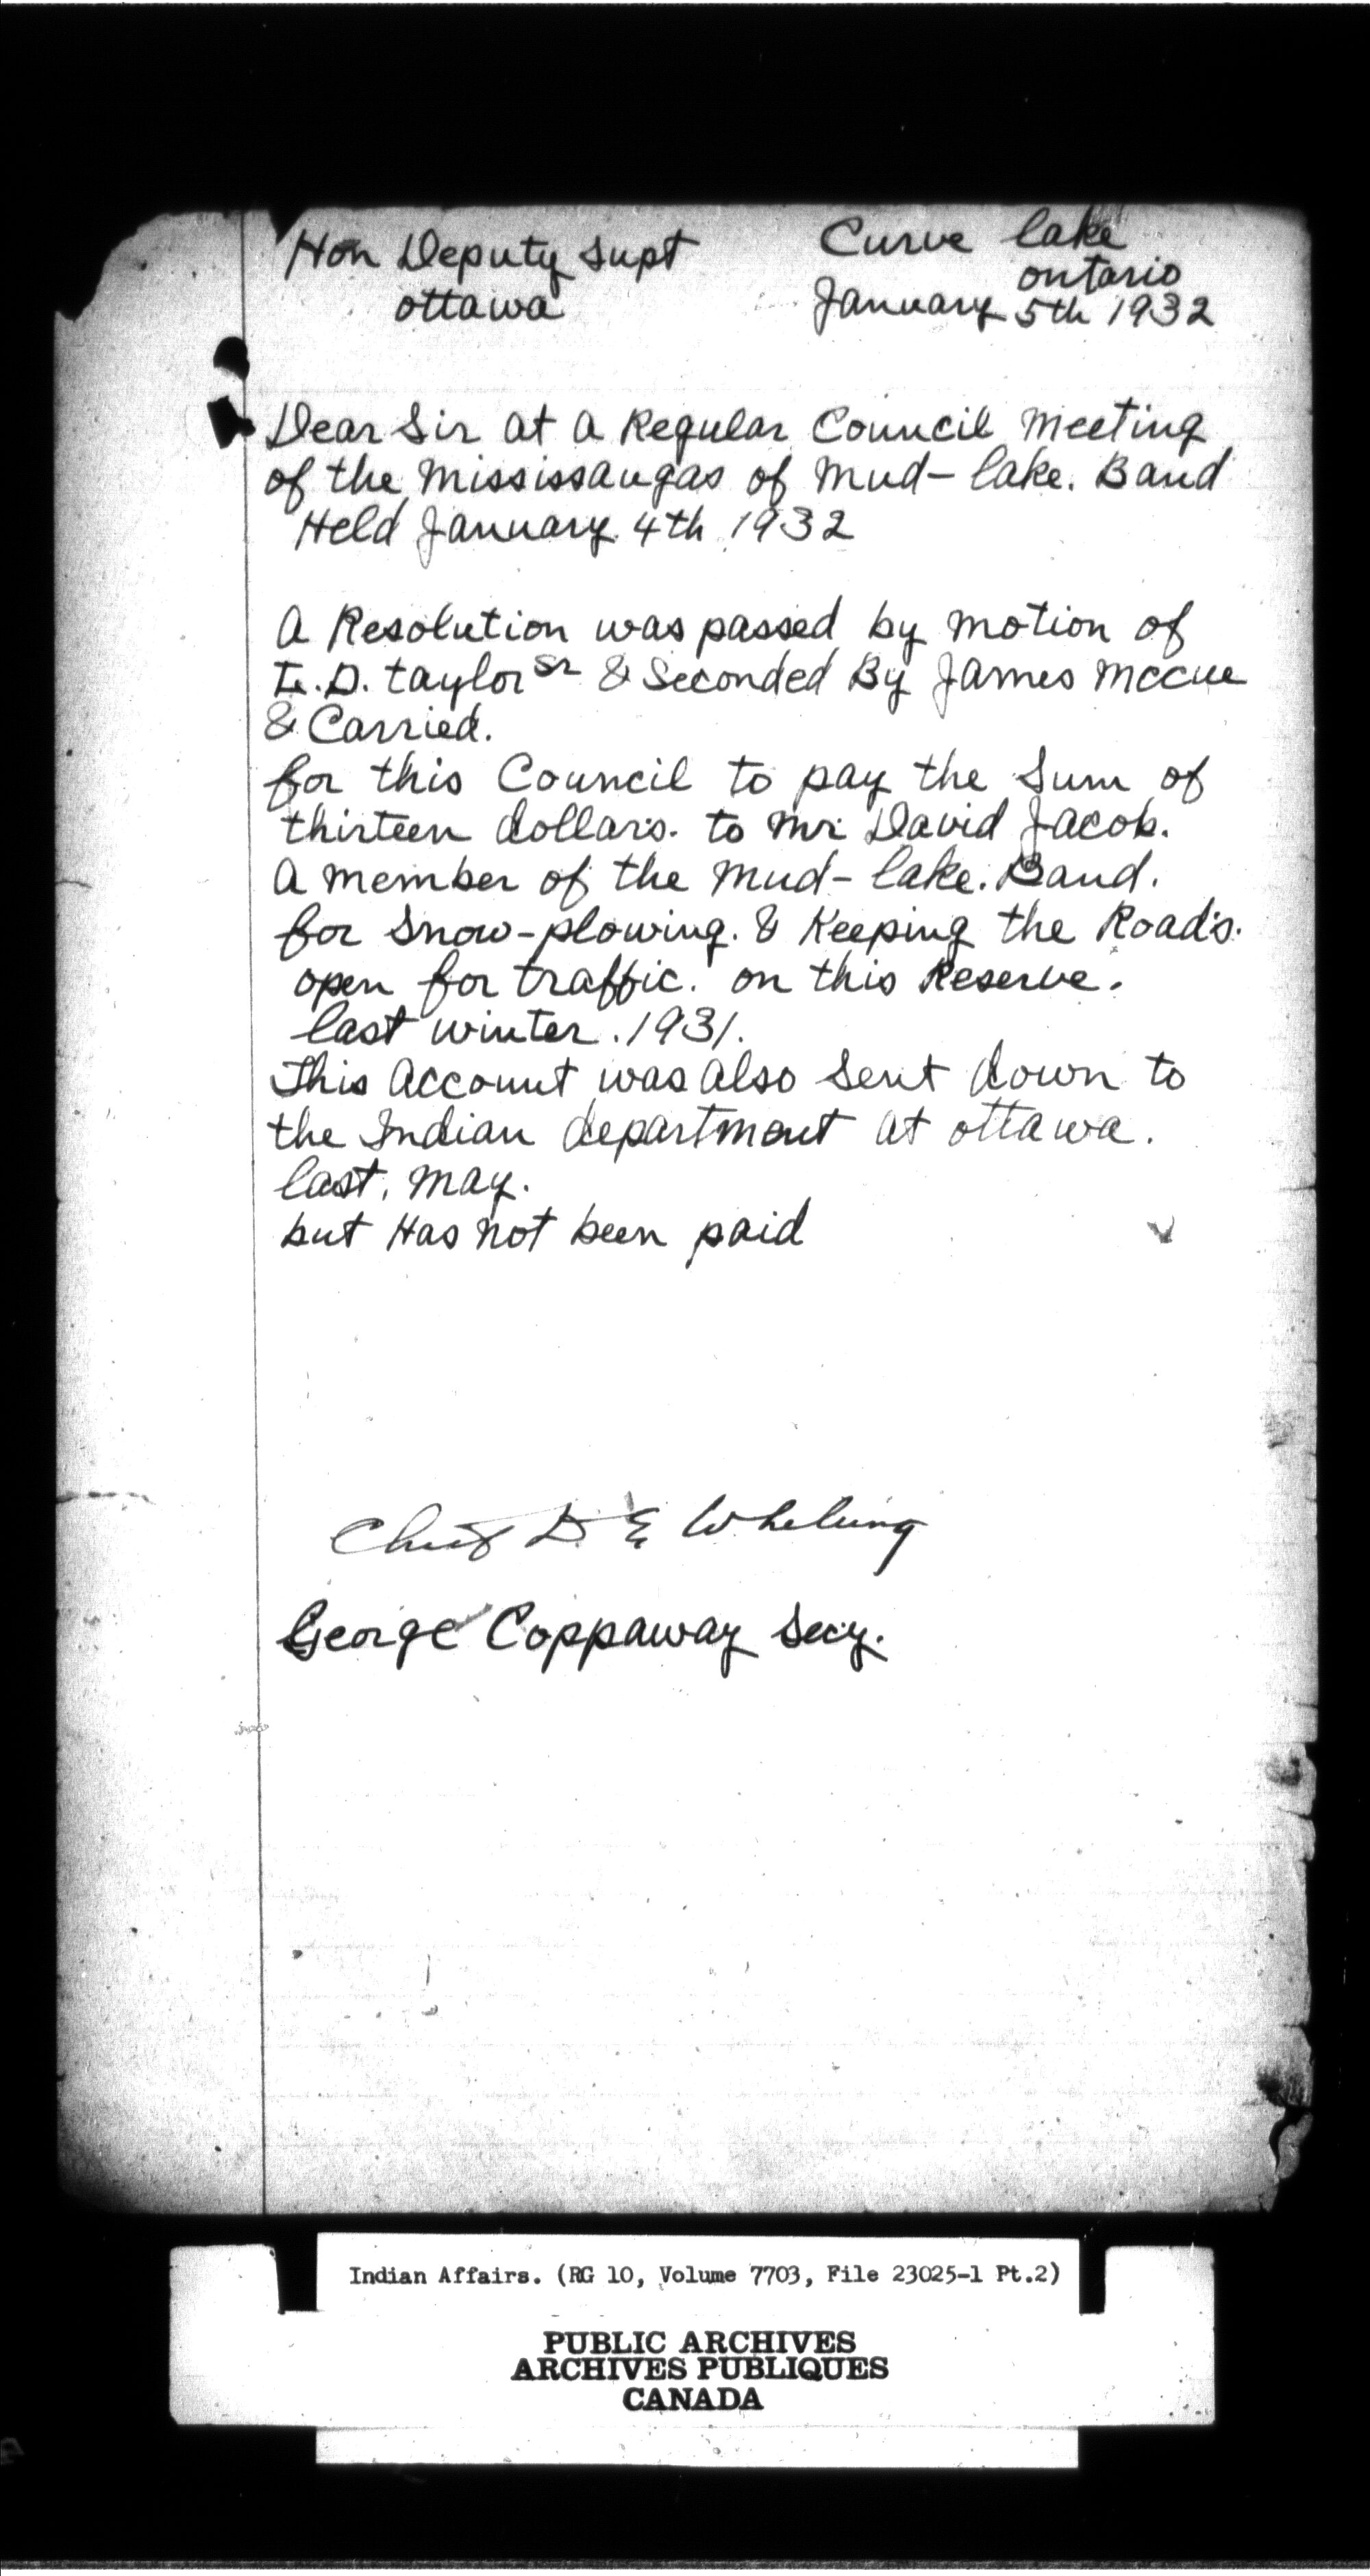 Hon Deputy Supt
ottawa
Curve lake
ontario
January 5th 1932
Dear Sir at a Regular Council meeting
of the Mississaugas of Mud-lake. Band
Held January 4th 1932
A Resolution was passed by motion of
D. taylor Sr & Seconded By James Mccue
& Carried.
for this Council to pay the Sum of
thirteen dollars. to Mr David Jacob.
A member of the Mud-lake. Band.
for Snow-plowing. & Keeping the Road's.
open for traffic. on this Reserve.
last winter. 1931.
This Account was also Sent down to
the Indian department at ottawa.
last. May.
but Has not been paid
Chief D. E Whetung
George Coppaway Secy.
Indian Affairs. (RG 10, Volume 7703, File 23025-1 Pt.2)
PUBLIC ARCHIVES
ARCHIVES PUBLIQUES
CANADA